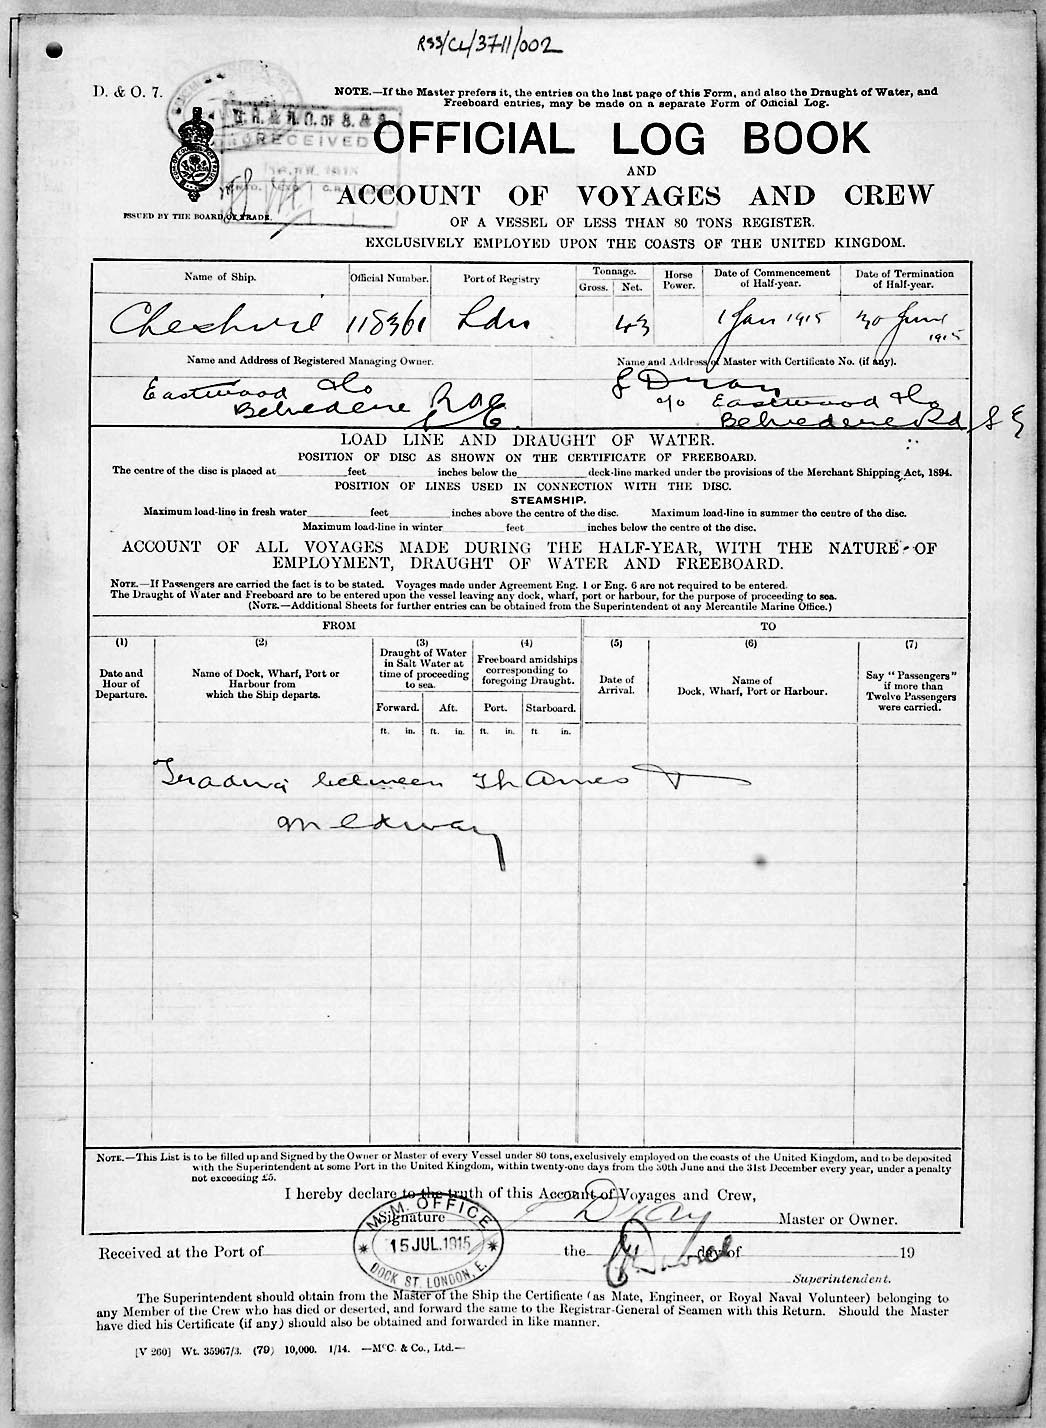 RSS/CL/3711/002
D. & O. 7.
NOTE.—If the Master prefers it, the entries on the last page of this Form, and also the Draught of Water, and
Freeboard entries, may be made on a separate Form of Official Log.
OF S. & S.
RECEIVED
OFFICIAL LOG BOOK
AND
ACCOUNT OF VOYAGES AND CREW
ISSUED BY THE BOARD OF TRADE.
OF A VESSEL OF LESS THAN 80 TONS REGISTER.
EXCLUSIVELY EMPLOYED UPON THE COASTS OF THE UNITED KINGDOM.
Name of Ship. Official Number. Port of Registry Tonnage. Gross. Net. Horse Power. Date of Commencement of Half-year. Date of Termination of Half-year.
Cheshire 118361 Ldn 43 1 Jan 1915 30 June 1915
Name and Address of Registered Managing Owner. Name and Address of Master with Certificate No. (if any).
Eastwood & Co
Belvedere Rd
S E.
c/o Eastwood & Co
Belvedere Rd S E
LOAD LINE AND DRAUGHT OF WATER.
POSITION OF DISC AS SHOWN ON THE CERTIFICATE OF FREEBOARD.
The centre of the disc is placed at feet inches below the deck-line marked under the provisions of the Merchant Shipping Act, 1894.
POSITION OF LINES USED IN CONNECTION WITH THE DISC.
STEAMSHIP.
Maximum load-line in fresh water feet inches above the centre of the disc. Maximum load-line in summer the centre of the disc.
Maximum load-line in winter feet inches below the centre of the disc.
ACCOUNT OF ALL VOYAGES MADE DURING THE HALF-YEAR, WITH THE NATURE OF
EMPLOYMENT, DRAUGHT OF WATER AND FREEBOARD.
NOTE.—If Passengers are carried the fact is to be stated. Voyages made under Agreement Eng. 1 or Eng. 6 are not required to be entered.
The Draught of Water and Freeboard are to be entered upon the vessel leaving any dock, wharf, port or harbour, for the purpose of proceeding to sea.
(NOTE.—Additional Sheets for further entries can be obtained from the Superintendent of any Mercantile Marine Office.)
FROM TO
(1) (2) (3) (4) (5) (6) (7)
Date and Hour of Departure.
Name of Dock, Wharf, Port or Harbour from which the Ship departs.
Draught of Water in Salt Water at time of proceeding to sea.
Freeboard amidships corresponding to foregoing Draught.
Date of Arrival.
Name of Dock, Wharf, Port or Harbour.
Say "Passengers" if more than Twelve Passengers were carried.
Forward. Aft. Port. Starboard.
ft. in. ft. in. ft. in. ft in.
Trading between Thames &
Medway
NOTE.—This List is to be filled up and Signed by the Owner or Master of every Vessel under 80 tons, exclusively employed on the coasts of the United Kingdom, and to be deposited
with the Superintendent at some Port in the United Kingdom, within twenty-one days from the 30th June and the 31st December every year, under a penalty
not exceeding £5.
I hereby declare to the truth of this Account of Voyages and Crew,
Signature Master or Owner.
M.M. OFFICE
15 JUL. 1915
DOCK ST. LONDON, E.
Received at the Port of the day of 19
Superintendent.
The Superintendent should obtain from the Master of the Ship the Certificate (as Mate, Engineer, or Royal Naval Volunteer) belonging to
any Member of the Crew who has died or deserted, and forward the same to the Registrar-General of Seamen with this Return. Should the Master
have died his Certificate (if any) should also be obtained and forwarded in like manner.
[V 260] Wt. 35967/3. (79) 10,000. 1/14. —McC. & Co., Ltd.—